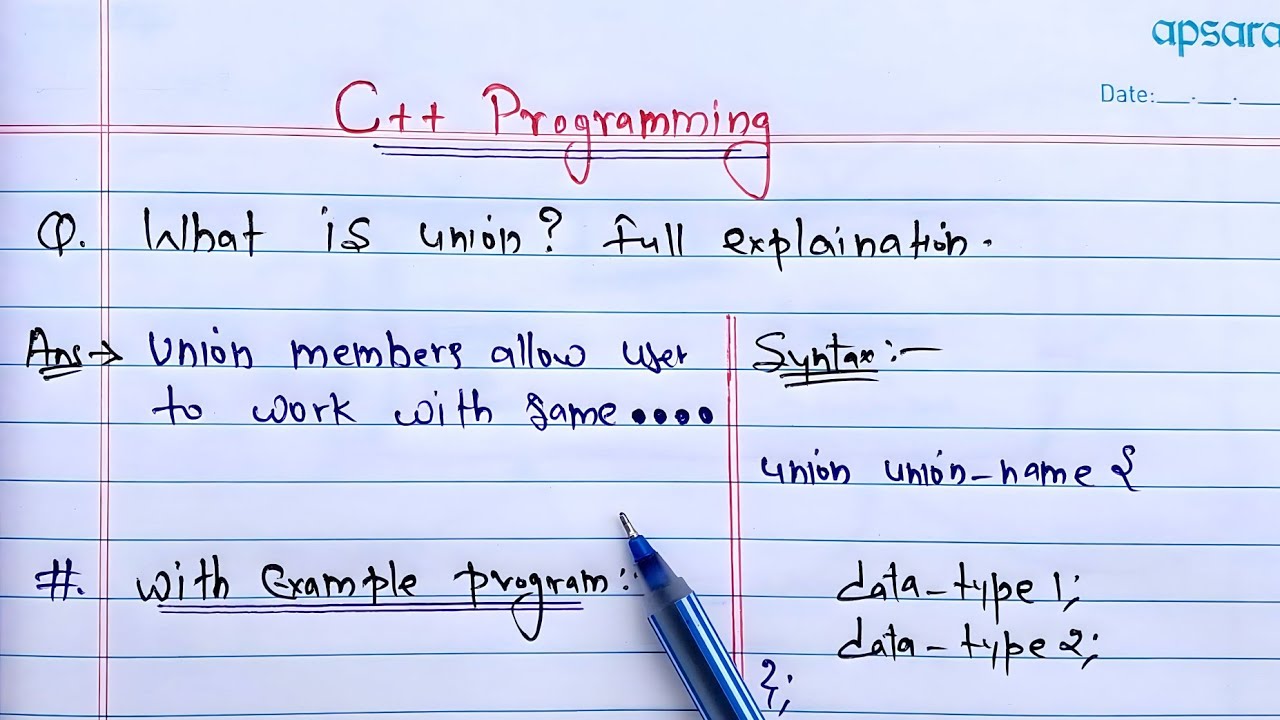 apsara
Date:__.__.__
C++ Programming
Q. What is union? full explaination.
Ans→ Union members allow user
to work with same ••••
#. with Example program:-
Syntax:-
union union-name {
data-type 1;
data-type 2;
};